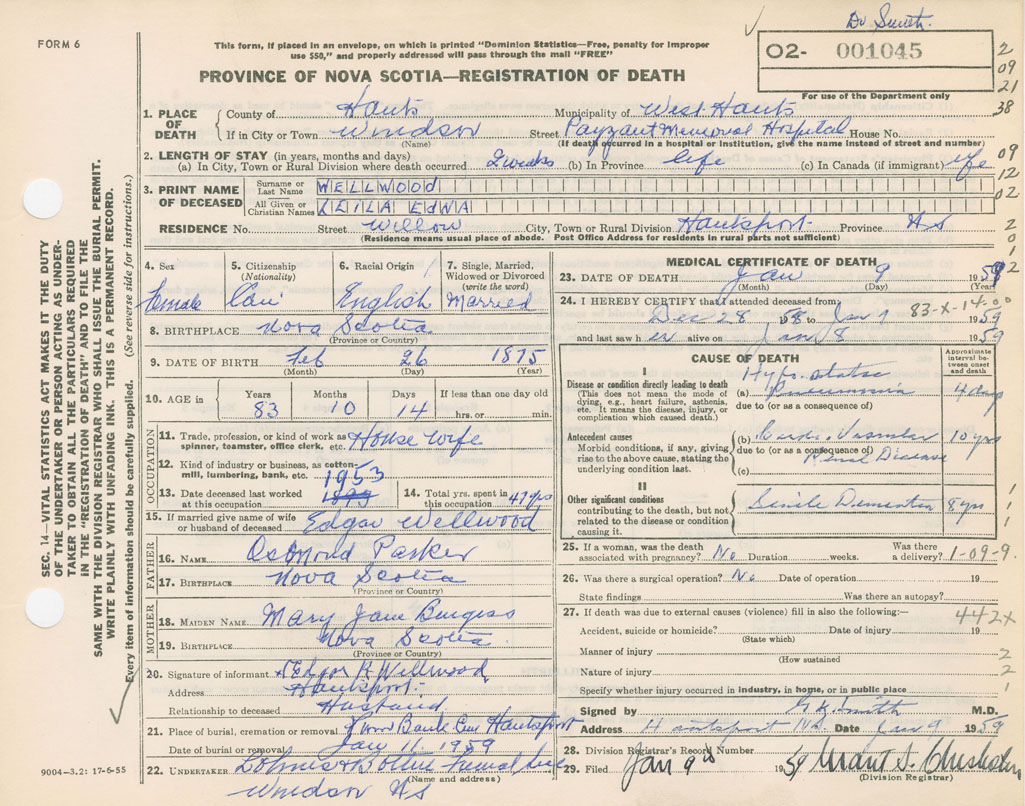 Dr Smith
FORM 6
This form, if placed in an envelope, on which is printed "Dominion Statistics—Free, penalty for improper
use $50," and properly addressed will pass through the mail "FREE"
02- 001045
For use of the Department only
PROVINCE OF NOVA SCOTIA—REGISTRATION OF DEATH
2
09
21
38
09
12
02
2
0
1
2
1. PLACE OF DEATH
County of Hants Municipality of West Hants
If in City or Town Windsor Street Payzant Memorial Hospital House No.
(Name) (If death occurred in a hospital or institution, give the name instead of street and number)
2. LENGTH OF STAY (in years, months and days)
(a) In City, Town or Rural Division where death occurred 2 weeks (b) In Province life (c) In Canada (if immigrant) life
3. PRINT NAME OF DECEASED
Surname or Last Name WELLWOOD
All Given or Christian Names LEILA EDNA
RESIDENCE No. Street Willow City, Town or Rural Division Hantsport Province N S
(Residence means usual place of abode. Post Office Address for residents in rural parts not sufficient)
4. Sex Female
5. Citizenship (Nationality) Can
6. Racial Origin English
7. Single, Married, Widowed or Divorced (write the word) Married
8. BIRTHPLACE Nova Scotia
(Province or Country)
9. DATE OF BIRTH Feb 26 1875
(Month) (Day) (Year)
10. AGE in Years 83 Months 10 Days 14 If less than one day old hrs. or min.
OCCUPATION
11. Trade, profession, or kind of work as spinner, teamster, office clerk, etc. House wife
12. Kind of industry or business, as cotton-mill, lumbering, bank, etc.
13. Date deceased last worked at this occupation 1953 1899
14. Total yrs. spent in this occupation 47 yrs
15. If married give name of wife or husband of deceased Edgar Wellwood
FATHER
16. NAME Osmond Parker
17. BIRTHPLACE Nova Scotia
(Province or Country)
MOTHER
18. MAIDEN NAME Mary Jane Burgess
19. BIRTHPLACE Nova Scotia
(Province or Country)
20. Signature of informant Edgar R Wellwood
Address Hantsport
Relationship to deceased Husband
21. Place of burial, cremation or removal Bank Cem Hantsport
Date of burial or removal Jan 11 1959
22. UNDERTAKER Funeral
(Name and address)
Windsor NS
MEDICAL CERTIFICATE OF DEATH
23. DATE OF DEATH Jan 9 1959
(Month) (Day) (Year)
24. I HEREBY CERTIFY that I attended deceased from 83-X-14-00
Dec 28 1958 to Jan 9 1959
and last saw her alive on Jan 8 1959
CAUSE OF DEATH
Approximate interval between onset and death
I
Disease or condition directly leading to death
(This does not mean the mode of dying, e.g., heart failure, asthenia, etc. It means the disease, injury, or complication which caused death.)
(a) Hypostatic Pneumonia 4 days
due to (or as a consequence of)
Antecedent causes
Morbid conditions, if any, giving rise to the above cause, stating the underlying condition last.
(b) Cardio Vascular 10 yrs
due to (or as a consequence of) Renal Disease
(c)
II
Other significant conditions
contributing to the death, but not related to the disease or condition causing it.
Senile Dementia 8 yrs
1
1
1
25. If a woman, was the death associated with pregnancy? No Duration weeks. Was there a delivery? 1-09-9.
26. Was there a surgical operation? No Date of operation 19
State findings Was there an autopsy?
27. If death was due to external causes (violence) fill in also the following:— 442X
Accident, suicide or homicide? Date of injury 19
(State which)
Manner of injury 2
(How sustained)
Nature of injury 2
Specify whether injury occurred in industry, in home, or in public place 1
Signed by Smith M.D.
Address Hantsport NS Date Jan 9 1959
28. Division Registrar's Record Number
29. Filed Jan 9th 1959 Grant S.
(Division Registrar)
SEC. 14—VITAL STATISTICS ACT MAKES IT THE DUTY
OF THE UNDERTAKER OR PERSON ACTING AS UNDER-
TAKER TO OBTAIN ALL THE PARTICULARS REQUIRED
IN THE "REGISTRATION OF DEATH" AND TO FILE THE
SAME WITH THE DIVISION REGISTRAR WHO SHALL ISSUE THE BURIAL PERMIT.
WRITE PLAINLY WITH UNFADING INK. THIS IS A PERMANENT RECORD.
Every item of information should be carefully supplied. (See reverse side for instructions.)
9004—3.2: 17-6-55